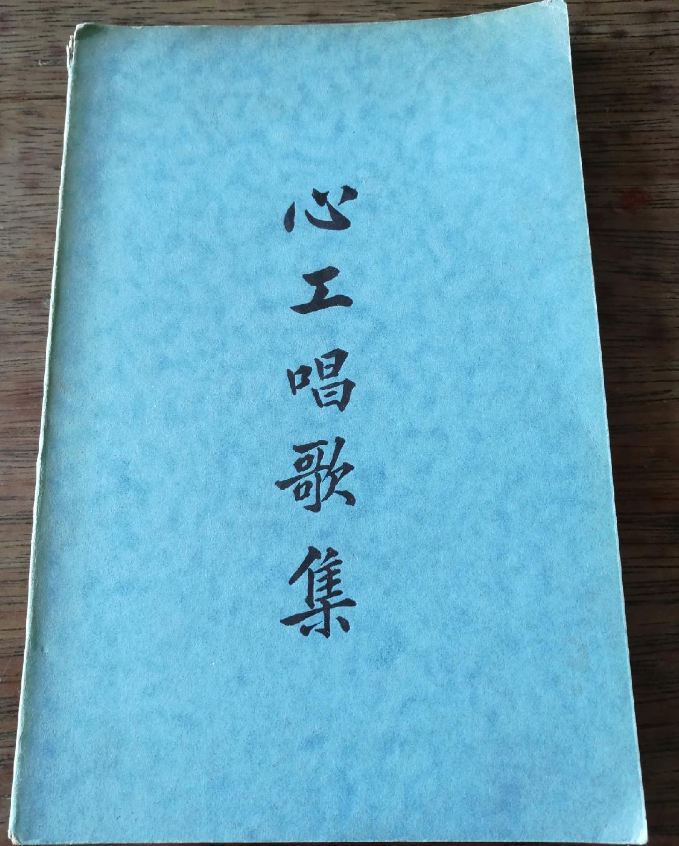 心工唱歌集